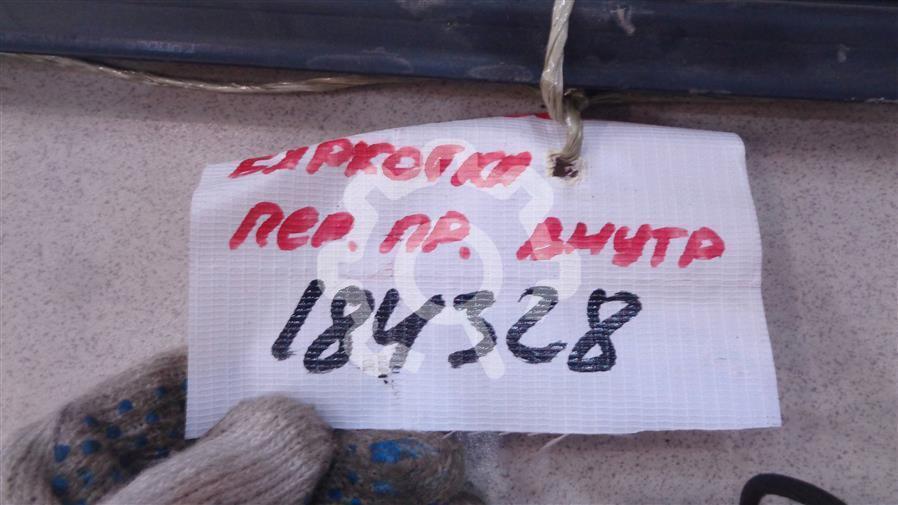 БАРХОТКИ
ПЕР. ПР. ВНУТР
184328